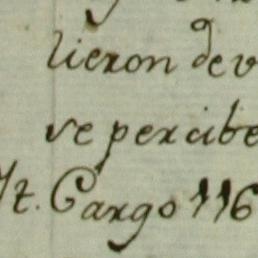 lieron de v
ve percibe
It. Cargo 116